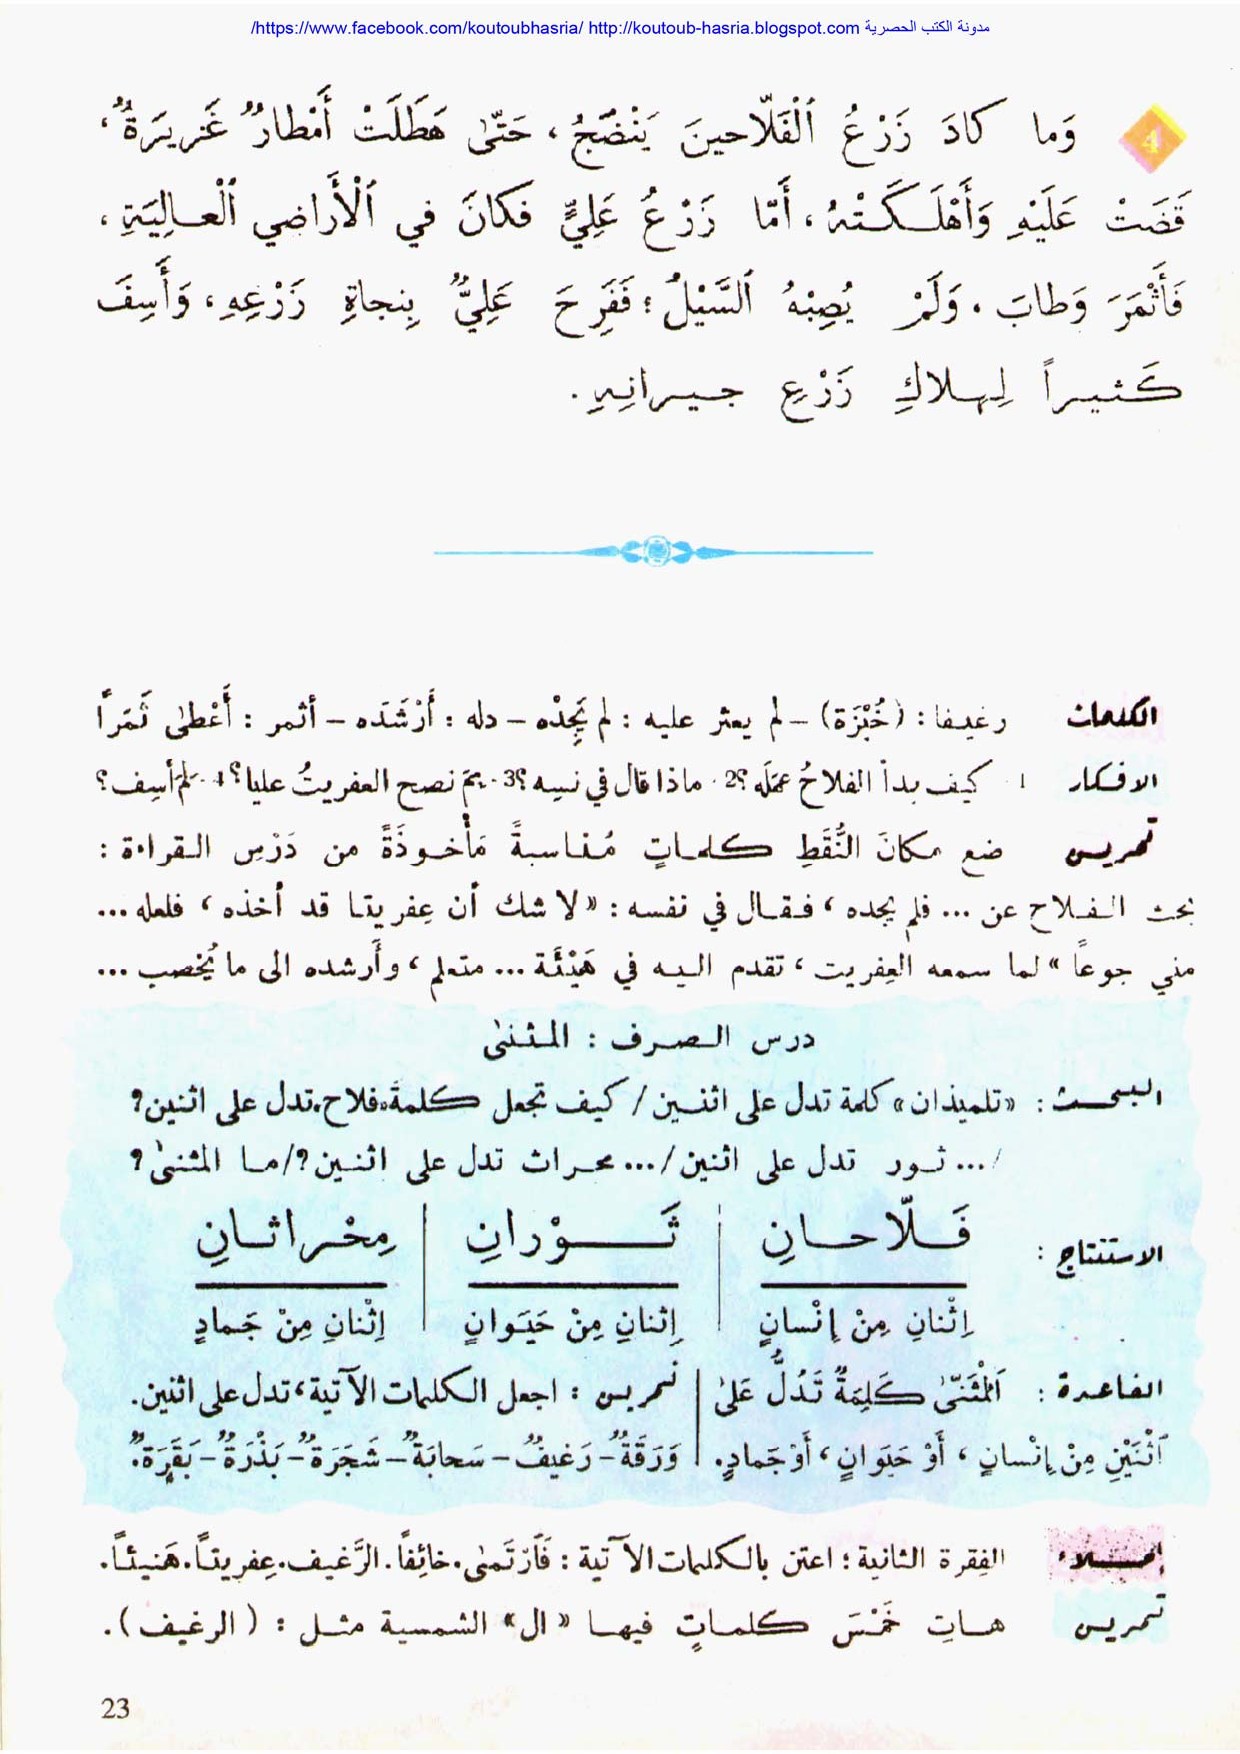 https://www.facebook.com/koutoubhasria/ http://koutoub-hasria.blogspot.com مدونة الكتب الحصرية/
4 وَما كادَ زَرْعُ ٱلْفَلّاحينَ يَنْضَجُ، حَتّىٰ هَطَلَتْ أَمْطارٌ غَزيرَةٌ،
قَضَتْ عَلَيْهِ وَأَهْلَكَتْهُ، أَمّا زَرْعُ عَلِيٍّ فَكانَ في ٱلْأَراضي ٱلْعالِيَةِ،
فَأَثْمَرَ وَطابَ، وَلَمْ يُصِبْهُ ٱلسَّيْلُ؛ فَفَرِحَ عَلِيٌّ بِنجاةِ زَرْعِهِ، وَأَسِفَ
كَثيراً لِهلاكِ زَرْعِ جيرانِهِ.
الكلمات رغيفا: (خُبْزَة) – لم يعثر عليه: لم يَجِدْه – دله: أَرْشَدَه – أثمر: أَعْطىٰ ثَمَراً
الافكار 1. كيف بدأ الفلاحُ عَمَلَه؟ 2. ماذا قال في نفسِه؟ 3. بِمَ نصح العفريتُ عليا؟ 4. لِمَ أسِف؟
تمرين ضع مكانَ النُّقَطِ كلماتٍ مُناسبةً مَأْخوذَةً من دَرْسِ القراءة:
بحث الفلاح عن ... فلم يجده، فقال في نفسه: «لا شك أن عِفريتا قد أخذه، فلعله ...
مني جوعاً» لما سمعه العِفريت، تقدم اليه في هَيْئَة ... متعلم، وأَرشده الى ما يُخصب ...
درس الصرف: المثنىٰ
البحث: «تلميذان» كلمة تدل على اثنين / كيف تجعل كلمة «فلاح» تدل على اثنين؟
/... ثور تدل على اثنين /... محراث تدل على اثنين؟/ ما المثنىٰ؟
الاستنتاج: فَلّاحانِ | ثَوْرانِ | مِحْراثانِ
اِثْنانِ مِنْ إِنْسانٍ | اِثنانِ مِنْ حَيَوانٍ | اِثْنانِ مِنْ جَمادٍ
القاعدة: اَلْمُثَنّىٰ كَلِمَةٌ تَدُلُّ عَلىٰ | تمرين: اجعل الكلمات الآتية، تدل على اثنين.
ٱثْنَيْنِ مِنْ إِنْسانٍ، أَوْ حَيَوانٍ، أَوْ جَمادٍ. | وَرَقَةٌ – رَغيفٌ – سَحابَةٌ – شَجَرَةٌ – بَذْرَةٌ – بَقَرَةٌ.
إملاء الفِقرة الثانية؛ اعتن بالكلمات الآتية: فَٱرْتَمىٰ. خائِفاً. الرَّغيف. عِفريتاً. هَنيئاً.
تمرين هاتِ خَمْسَ كلماتٍ فيها «ال» الشمسية مثل: (الرغيف).
23